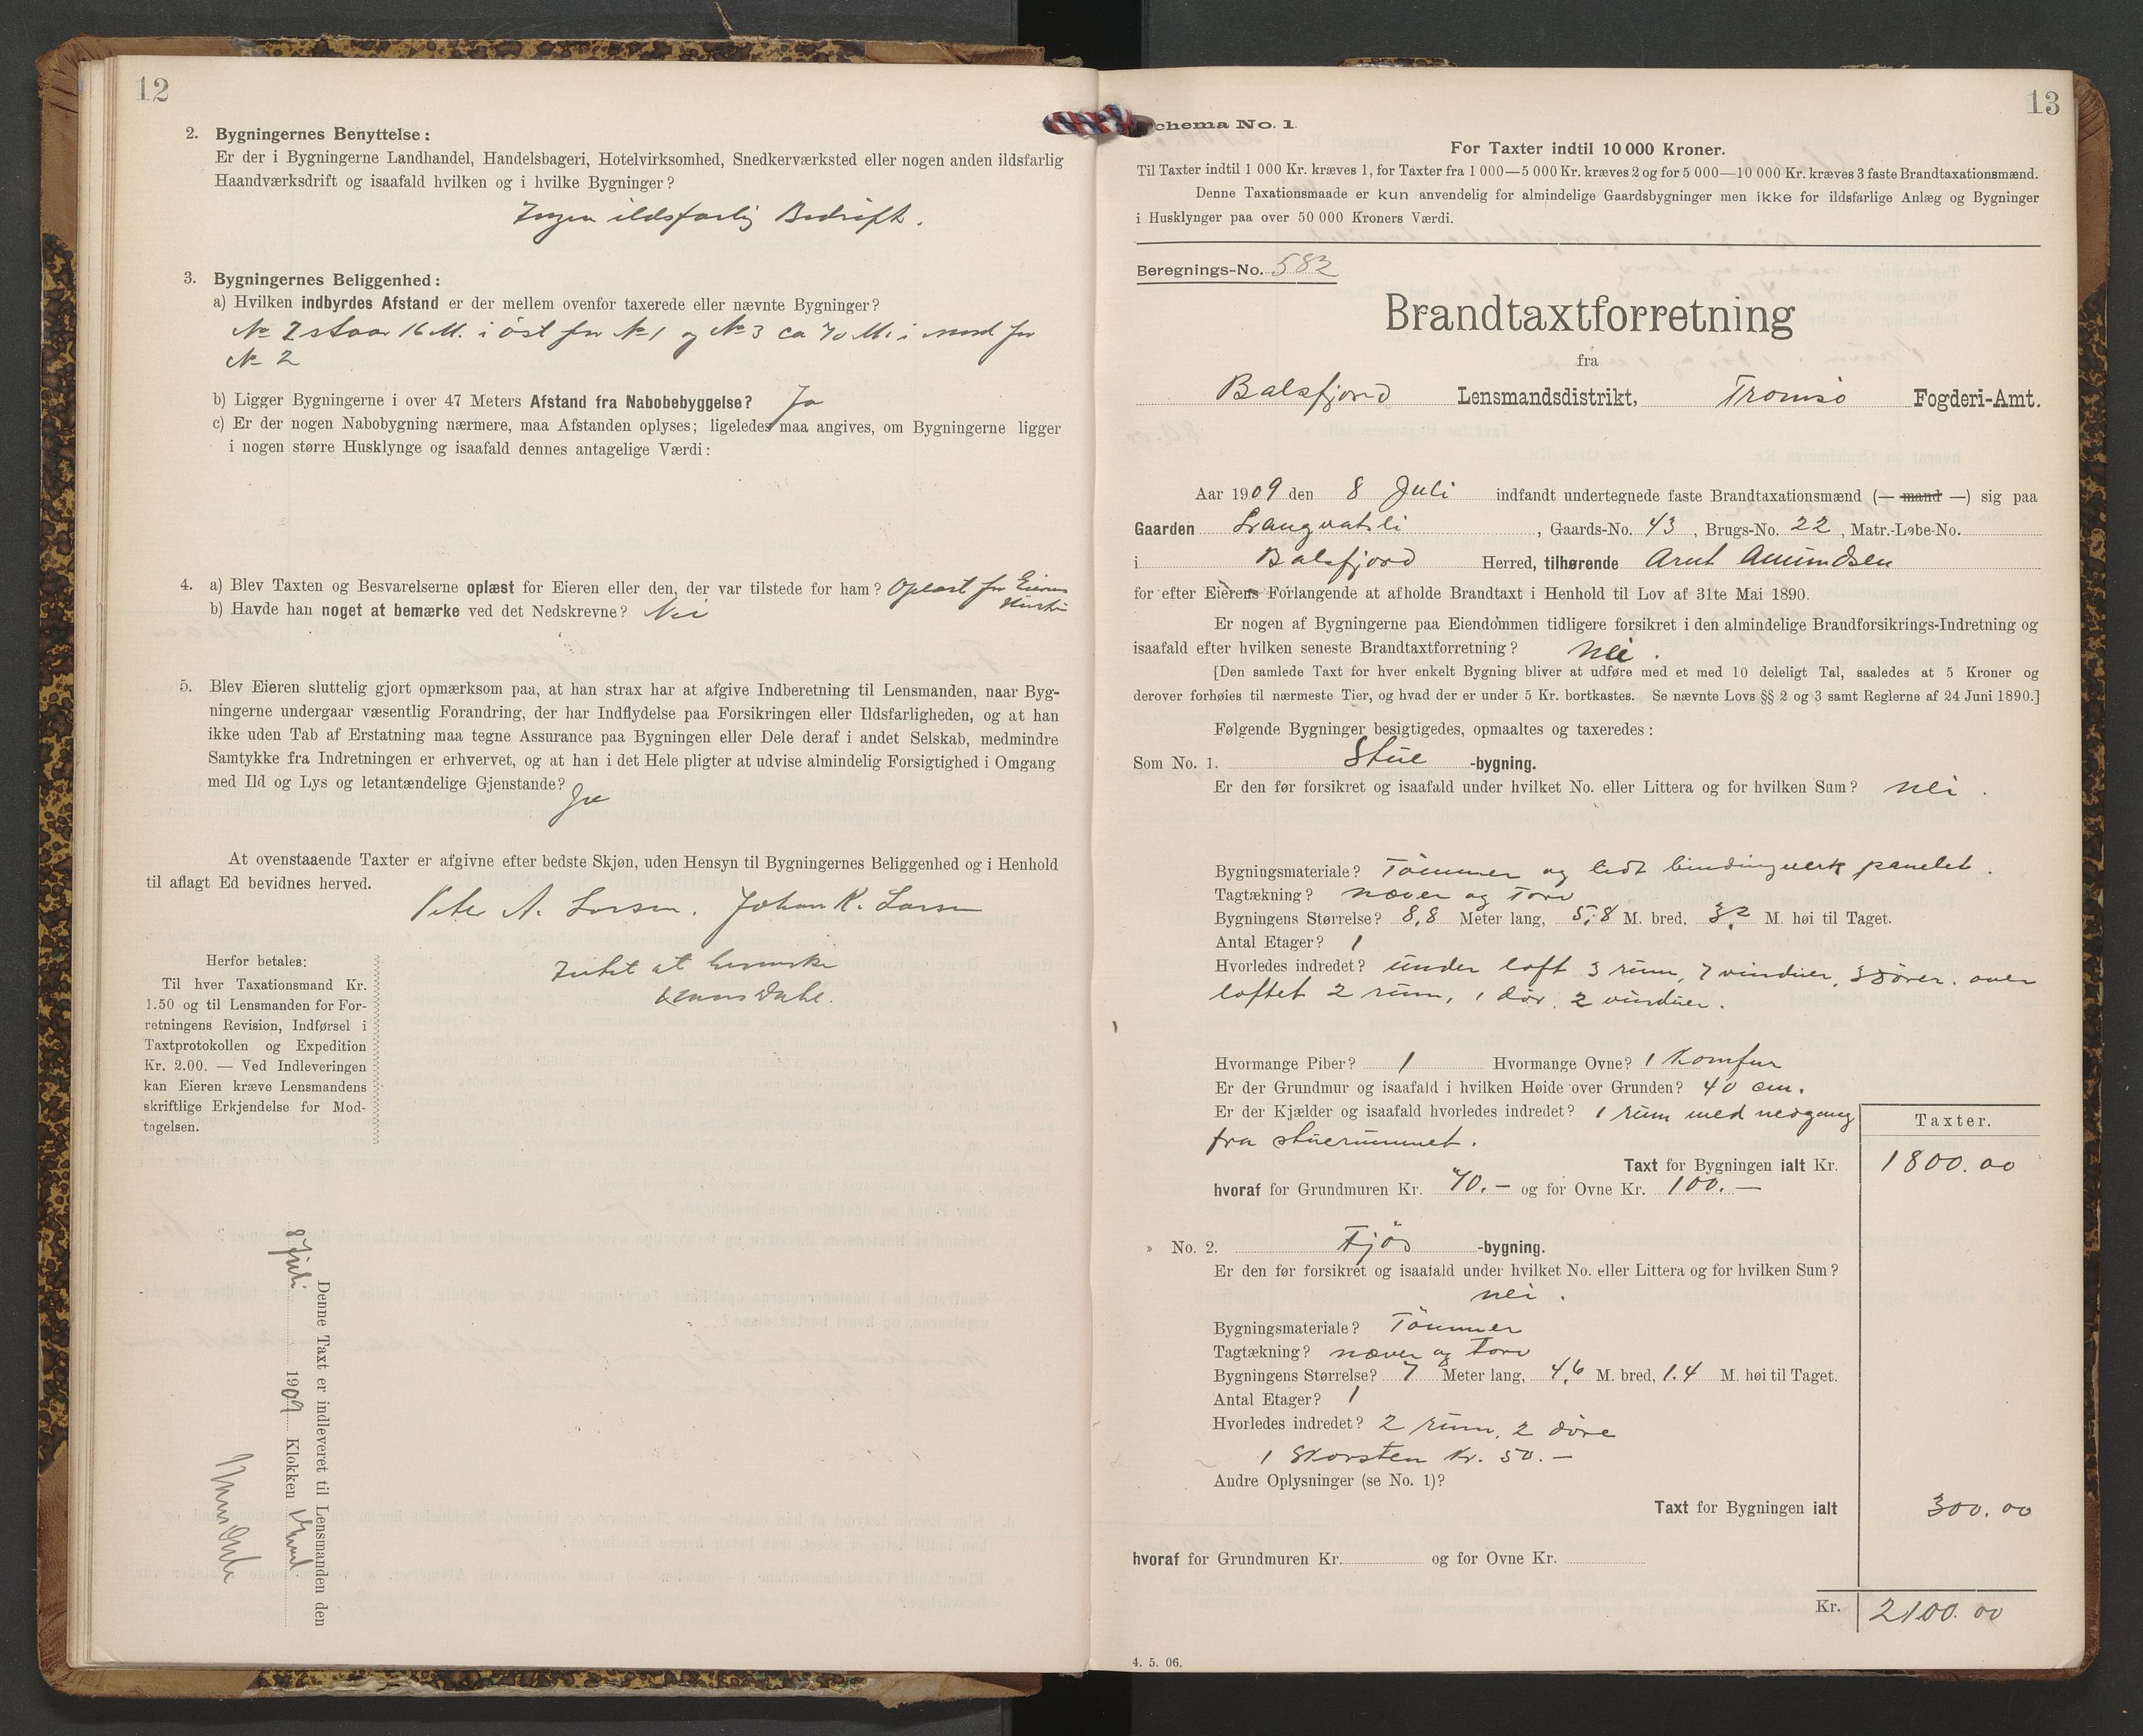 12
2. Bygningernes Benyttelse:
Er der i Bygningerne Landhandel, Handelsbageri, Hotelvirksomhed, Snedkerværksted eller nogen anden ildsfarlig
Haandværksdrift og isaafald hvilken og i hvilke Bygninger?
Ingen ildsfarlig Bedrift.
3. Bygningernes Beliggenhed:
a) Hvilken indbyrdes Afstand er der mellem ovenfor taxerede eller nævnte Bygninger?
No 2 staar 16 M. i öst for No 1 og No 3 ca 70 M. i nord for
No 2
b) Ligger Bygningerne i over 47 Meters Afstand fra Nabobebyggelse? Ja
c) Er der nogen Nabobygning nærmere, maa Afstanden oplyses; ligeledes maa angives, om Bygningerne ligger
i nogen større Husklynge og isaafald dennes antagelige Værdi:
4. a) Blev Taxten og Besvarelserne oplæst for Eieren eller den, der var tilstede for ham? Oplæst for Eierens
Hustru
b) Havde han noget at bemærke ved det Nedskrevne? Nei
5. Blev Eieren sluttelig gjort opmærksom paa, at han strax har at afgive Indberetning til Lensmanden, naar Byg-
ningerne undergaar væsentlig Forandring, der har Indflydelse paa Forsikringen eller Ildsfarligheden, og at han
ikke uden Tab af Erstatning maa tegne Assurance paa Bygningen eller Dele deraf i andet Selskab, medmindre
Samtykke fra Indretningen er erhvervet, og at han i det Hele pligter at udvise almindelig Forsigtighed i Omgang
med Ild og Lys og letantændelige Gjenstande? Ja
At ovenstaaende Taxter er afgivne efter bedste Skjøn, uden Hensyn til Bygningernes Beliggenhed og i Henhold
til aflagt Ed bevidnes herved.
Peter A. Larsen. Johan K. Larsen
Intet at bemærke
Hans Dahl.
Herfor betales:
Til hver Taxationsmand Kr.
1.50 og til Lensmanden for For-
retningens Revision, Indførsel i
Taxtprotokollen og Expedition
Kr. 2.00. — Ved Indleveringen
kan Eieren kræve Lensmandens
skriftlige Erkjendelse for Mod-
tagelsen.
Denne Taxt er indleveret til Lensmanden den
8 Juli 1909 Klokken
13
Schema No. 1.
For Taxter indtil 10 000 Kroner.
Til Taxter indtil 1 000 Kr. kræves 1, for Taxter fra 1 000—5 000 Kr. kræves 2 og for 5 000—10 000 Kr. kræves 3 faste Brandtaxationsmænd.
Denne Taxationsmaade er kun anvendelig for almindelige Gaardsbygninger men ikke for ildsfarlige Anlæg og Bygninger
i Husklynger paa over 50 000 Kroners Værdi.
Beregnings-No. 582
Brandtaxtforretning
fra
Balsfjord Lensmandsdistrikt, Tromsö Fogderi-Amt.
Aar 1909 den 8 Juli indfandt undertegnede faste Brandtaxationsmænd (— mand —) sig paa
Gaarden Langvatsli, Gaards-No. 43, Brugs-No. 22, Matr.-Løbe-No.
i Balsfjord Herred, tilhørende Arnt Amundsen
for efter Eierens Forlangende at afholde Brandtaxt i Henhold til Lov af 31te Mai 1890.
Er nogen af Bygningerne paa Eiendommen tidligere forsikret i den almindelige Brandforsikrings-Indretning og
isaafald efter hvilken seneste Brandtaxtforretning? Nei.
[Den samlede Taxt for hver enkelt Bygning bliver at udføre med et med 10 deleligt Tal, saaledes at 5 Kroner og
derover forhøies til nærmeste Tier, og hvad der er under 5 Kr. bortkastes. Se nævnte Lovs §§ 2 og 3 samt Reglerne af 24 Juni 1890.]
Følgende Bygninger besigtigedes, opmaaltes og taxeredes:
Som No. 1. Stue -bygning.
Er den før forsikret og isaafald under hvilket No. eller Littera og for hvilken Sum? nei.
Bygningsmateriale? Tömmer og lidt bindingverk panelet.
Tagtækning? næver og torv
Bygningens Størrelse? 8,8 Meter lang, 5,8 M. bred, 3,2 M. høi til Taget.
Antal Etager? 1
Hvorledes indredet? under loft 3 rum, 7 vinduer, 3 dörer. over
loftet 2 rum, 1 dör, 2 vinduer.
Hvormange Piber? 1 Hvormange Ovne? 1 komfur
Er der Grundmur og isaafald i hvilken Høide over Grunden? 40 cm.
Er der Kjælder og isaafald hvorledes indredet? 1 rum med nedgang
fra stuerummet.
Taxter.
Taxt for Bygningen ialt Kr. 1800.00
hvoraf for Grundmuren Kr. 70.— og for Ovne Kr. 100.—
» No. 2. Fjös -bygning.
Er den før forsikret og isaafald under hvilket No. eller Littera og for hvilken Sum?
nei.
Bygningsmateriale? Tömmer
Tagtækning? næver og torv
Bygningens Størrelse? 7 Meter lang, 4,6 M. bred, 1.4 M. høi til Taget.
Antal Etager? 1
Hvorledes indredet? 2 rum, 2 döre
1 Skorsten Kr. 50.—
Andre Oplysninger (se No. 1)?
Taxt for Bygningen ialt 300.00
hvoraf for Grundmuren Kr. og for Ovne Kr.
Kr. 2100.00
4. 5. 06.